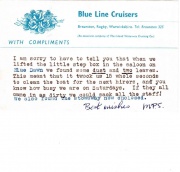 Blue Line Cruisers
Braunston, Rugby, Warwickshire. Tel Braunston
WITH COMPLIMENTS
I am sorry to have to tell you that when we
lifted the little step box in the saloon on
Blue Dawn we found some dust and two leaves.
This meant that it took us 15 whole seconds
to clean the boat for the next hirers, and you
know how busy we are on Saturdays. If they all
came in as dirty we could sack all the staff!
We also found the bookmark now enclosed.
Best wishes